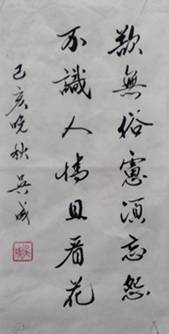 欲無俗慮須忘怨
不識人情且看花
己亥晚秋 吳